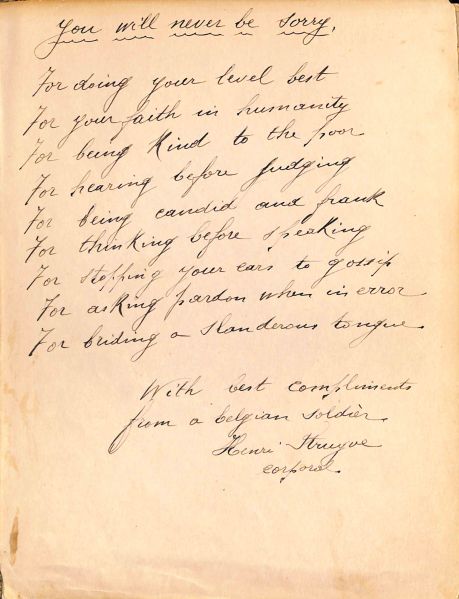 You will never be sorry.
For doing your level best
For your faith in humanity
For being kind to the poor
For hearing before judging
For being candid and frank
For thinking before speaking
For stopping your ears to gossip
For asking pardon when in error
For briding a slanderous tongue.
With best compliments
from a belgian soldier.
Henri Struyve
corporal.